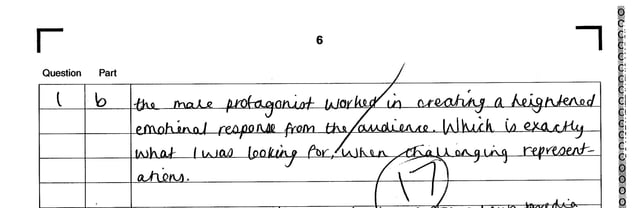 6
Question Part
1 b the male protagonist worked in creating a heightened
emotional response from the audience. Which is exactly
what I was looking for, when challenging represent-
ations.
17
media